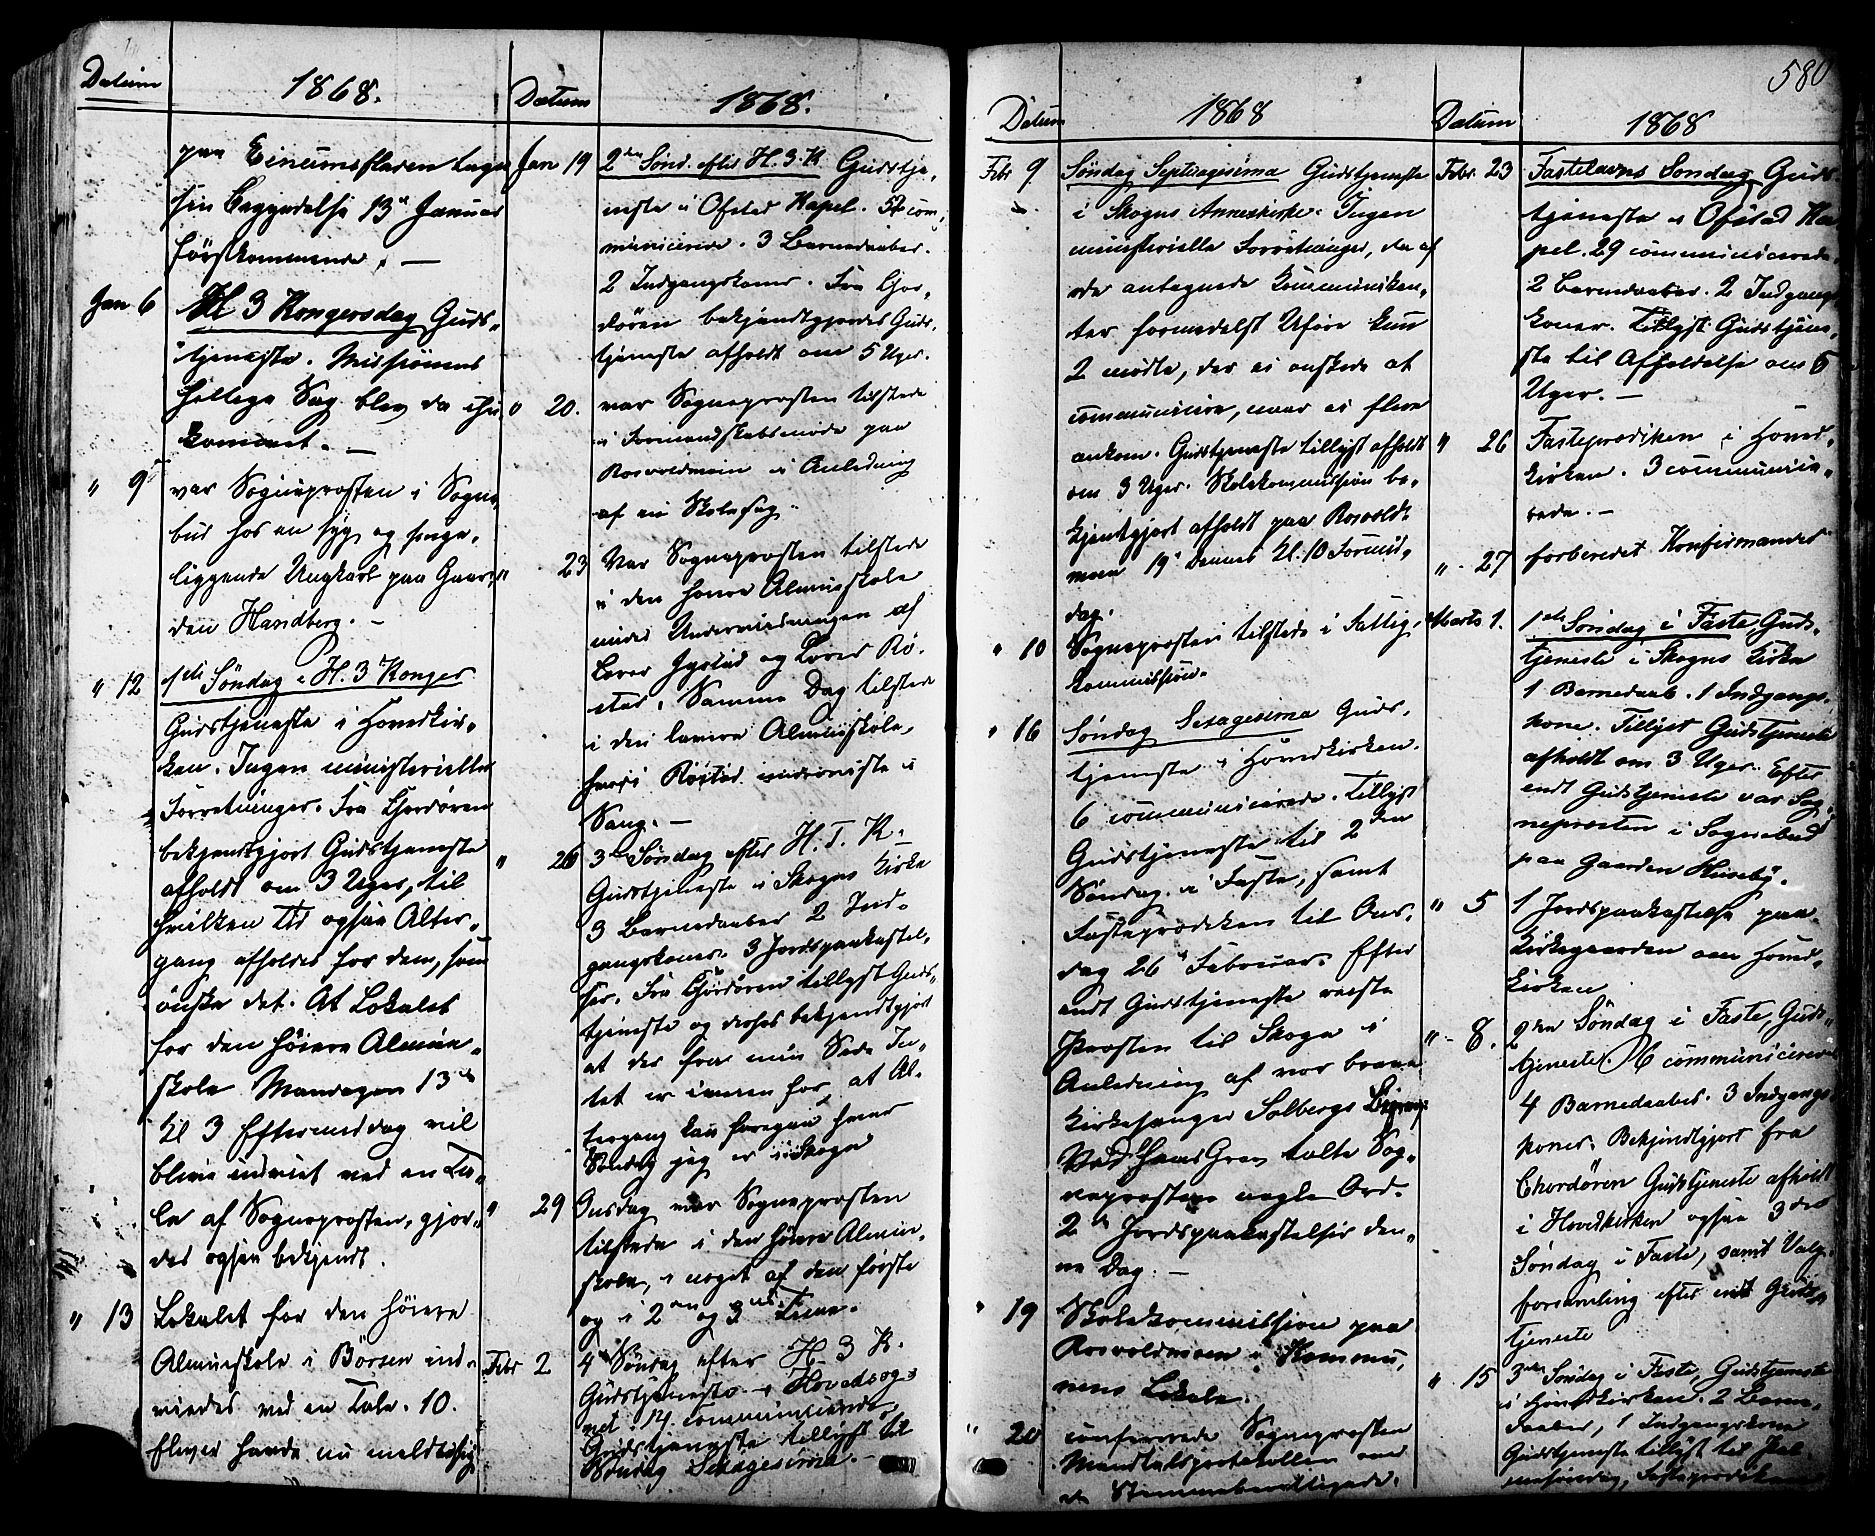 Datum
1868.
paa Einumsfladen tage
sin Begyndelse 13de Januar
førstkommende. —
Jan 6
Hl 3 Kongersdag Guds-
tjeneste. Missionens
hellige Sag blev da ihu
kommet. —
" 9de
var Sogneprosten i Sogne
bud hos en syg og senge-
liggende Ungkarl paa Gaar-
den Handberg. —
" 12
1ste Søndag e H. 3 Konger
Gudstjeneste i Hovedkir-
ken. Ingen ministerielle
Forretninger. Fra Chordøren
bekjendtgjort Gudstjeneste
afholdt om 3 Uger, til
hvilken Tid ogsaa Alter-
gang afholdes for dem, som
ønske det. At Lokalet
for den høiere Almue-
skole Mandagen 13de
Kl 3 Eftermiddag vil
blive indviet ved en Ta-
le af Sogneprosten, gjor-
des ogsaa bekjendt.
" 13
Lokalet for den høiere
Almueskole i Børsen ind-
viedes ved en Tale. 10.
Elever havde nu meldt sig
Datum
1868.
Jan 19
2den Sønd. efter H. 3. K. Gudstje-
neste i Ofstad Kapel. 54 com-
municerede. 3 Barnedaaber.
2 Indgangskoner. Fra Chor-
døren bekjendtgjordes Guds-
tjeneste afholdt om 5 Uger.
" 20.
var Sogneprosten tilstede
i Formandskabsmøde paa
Rosvoldmoen i Anledning
af en Skolesag.
" 23
Var Sogneprosten tilstede
i den høiere Almueskole
under Underviisningen af
Lærer Jystad og Lærer Rø-
stad. Samme Dag tilstede
i den lavere Almueskole,
hvori Røstad underviste i
Sang. —
" 26
3die Søndag efter H. T. K.
Gudstjeneste i Skogns Kirke
3 Barnedaaber 2 Ind-
gangskoner. 3 Jordspaakastel-
ser. Fra Chordøren tillyst Guds-
tjeneste og derhos bekjendtgjort
at der fra min Side In-
tet er iveien for, at Al-
tergang kan foregaa hver
Søndag jeg er i Skogn
" 29
Onsdag var Sogneprosten
tilstede i den høiere Almue-
skole, i noget af den første
og i 2den og 3die Time.
Febr 2
4de Søndag efter H. 3 K.
Gudstjeneste i Hovedsog-
net. 14 communicerede,
Gudstjeneste tillyst til
Søndag Sexagesima. —
Datum
1868
Febr 9.
Søndag Septuagesima Gudstjeneste
i Skogns Annexkirke. Ingen
ministerielle Forretninger, da af
de antegnede Communiken-
ter formedelst Uføre kun
2 mødte, der ei ønskede at
communicere, naar ei flere
ankom. Gudstjeneste tillyst afholdt
om 3 Uger. Skolekommission be-
kjendtgjort afholdt paa Rosvold-
moen 19de Dennes Kl. 10 Formid-
dag.
" 10
Sogneprosten tilstede i Fattig-
kommission.
" 16
Søndag Sexagesima Guds-
tjeneste i Hovedkirken.
6 communicerede. Tillyst
Gudstjeneste til 2den
Søndag i Faste, samt
Fasteprædiken til Ons-
dag 26de Februar. Efter
endt Gudstjeneste reiste
Prosten til Skogn i
Anledning af vor brave
Kirkesanger Solbergs
Ved hans Grav talte Sog-
neprosten nogle Ord.
2de Jordspaakastelser den-
ne Dag. —
" 19
Skolekommission paa
Rosvoldmoen i Kommu-
nens Lokale.
" 20
confererede Sogneprosten
Mandtalsprotokollen over
de Stemmeberettigede.
580
Datum
1868
Febr. 23
Fastelavns Søndag Guds
tjeneste i Ofstad Ka-
pel. 29 communicerede.
2 Barnedaaber. 2 Indgangs
koner. Tillyst Gudstjene-
ste til Afholdelse om 6
Uger. —
" 26
Fasteprædiken i Hoved-
kirken. 3 communice-
rede. —
" 27
forberedet Konfirmander
Marts 1.
1ste Søndag i Faste, Guds-
tjeneste i Skogns Kirke
1 Barnedaab. 1 Indgangs-
kone. Tillyst Gudstjeneste
afholdt om 3 Uger. Efter
endt Gudstjeneste var Sog-
neprosten i Sognebud
paa Gaarden Huseby.
" 5
1 Jordspaakastelse paa
Kirkegaarden om Hoved-
kirken
" 8.
2den Søndag i Faste, Guds-
tjeneste. 16 communicerede
4 Barnedaaber. 3 Indgangs
koner. Bekjendtgjort fra
Chordøren Gudstjeneste afholdt
i Hovedkirken ogsaa 3die
Søndag i Faste, samt Valg-
forsamling efter endt Guds-
tjeneste
" 15
3die Søndag i Faste, Gudstjeneste
i Hovedkirken. 2 Barne-
daaber, 1 Indgangskone
Gudstjeneste tillyst til Pal-
mesøndag, Fasteprædiken